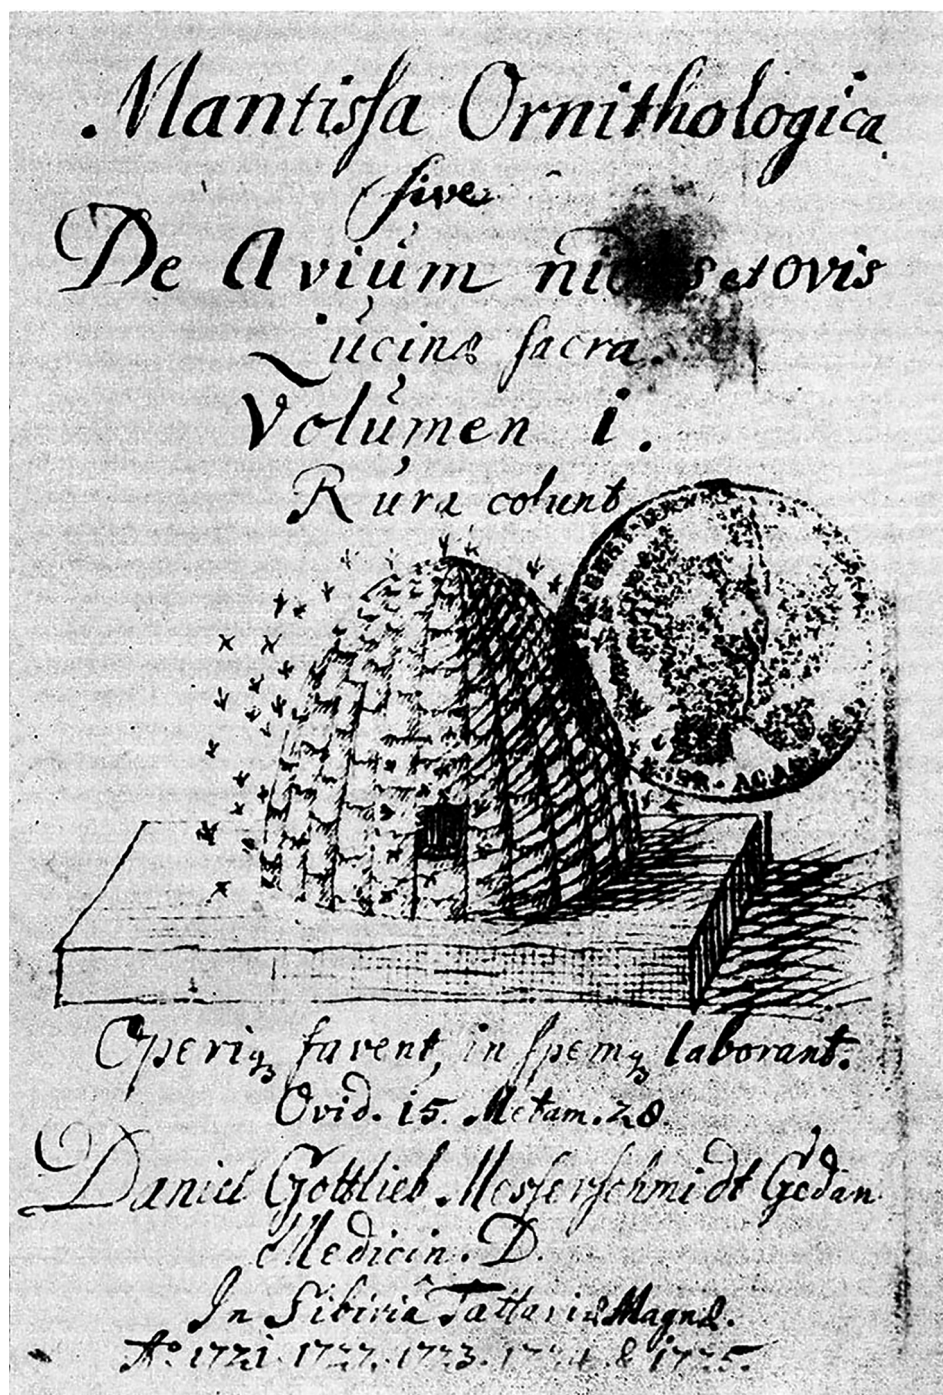 Mantissa Ornithologica
sive
De Avium et ovis
Lucinæ sacra.
Volumen i.
Rura colunt
ACADEM
Operiqꝫ favent, in spemqꝫ laborant.
Ovid. 15. Metam. 28.
Daniel Gottlieb Messerschmidt Gedan
Medicin. D.
In Sibiriâ Tattariæ Magnæ.
Aº. 1721. 1722. 1723. 1724 & 1725.